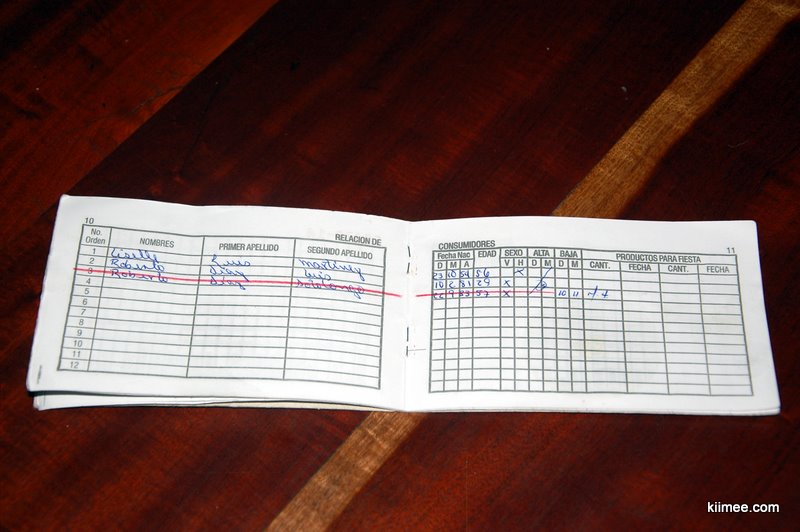 10
RELACION DE
No. Orden NOMBRES PRIMER APELLIDO SEGUNDO APELLIDO
1 Luis Martinez
2 Roberto Diaz Luis
3 Roberto Diaz
4
5
6
7
8
9
10
11
12
CONSUMIDORES 11
Fecha Nac EDAD SEXO ALTA BAJA PRODUCTOS PARA FIESTA
D M A V H D M D M CANT. FECHA CANT. FECHA
23 10 54 56 X
10 2 81 29 X
9 53 57 X 10 11
kiimee.com